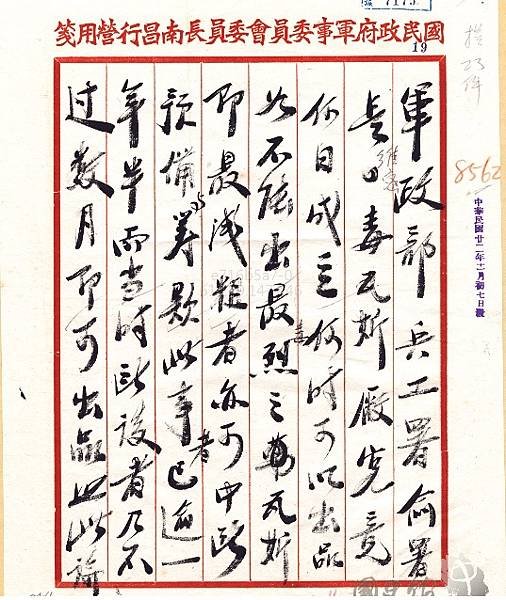 國民政府軍事委員會委員長南昌行營用箋
19
軍政部兵工署俞署
長 毒瓦斯廠究竟
何日成立何時可以出品
如不能出最烈之毒瓦斯
即最淺粗者亦可中
預備籌款此事已逾一
年半而當時 設者乃不
過數月即可出品照此論
8562
中華民國廿二年 月初七日發